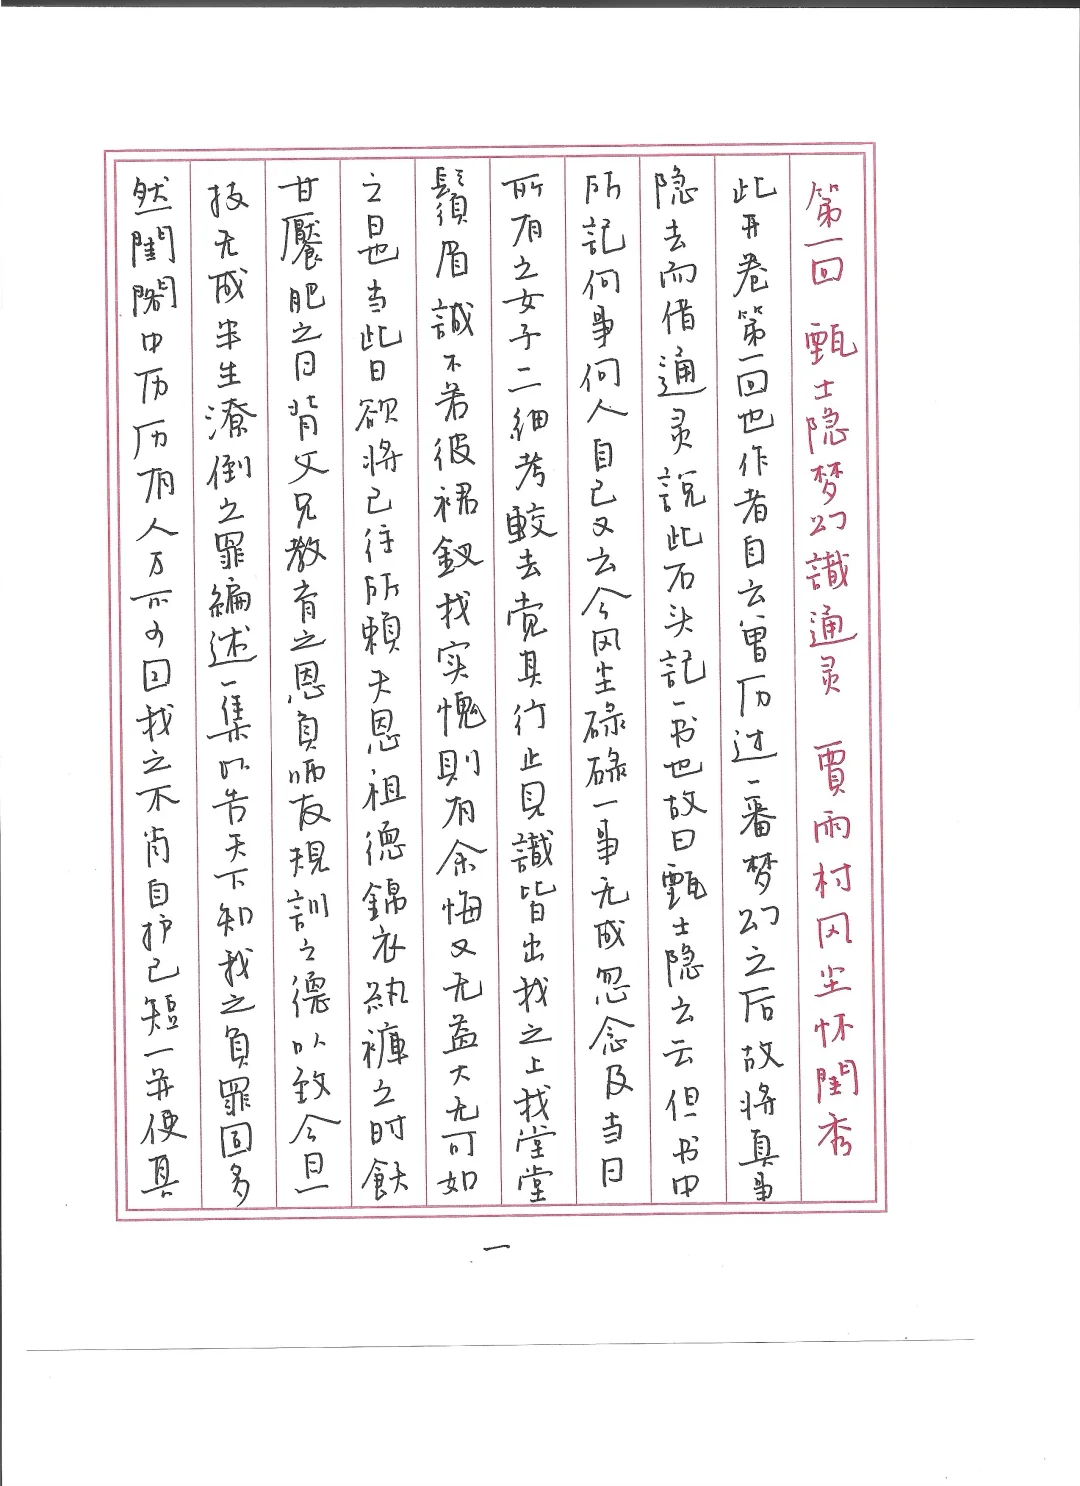 第一回 甄士隐梦幻識通灵 賈雨村风尘怀閨秀
此开卷第一回也作者自云曾历过一番梦幻之后故将真事
隐去而借通灵説此石头記一书也故曰甄士隐云云但书中
所記何事何人自己又云今风尘碌碌一事无成忽念及当日
所有之女子一一細考較去觉其行止見識皆出我之上我堂堂
鬚眉誠不若彼裙釵我实愧則有余悔又无益大无可如
之日也当此日欲将已往所賴天恩祖德錦衣紈褲之时飫
甘饜肥之日背父兄教育之恩負师友規訓之德以致今日一
技无成半生潦倒之罪編述一集以告天下知我之負罪固多
然閨閣中历历有人万不可因我之不肖自护己短一并使其
一